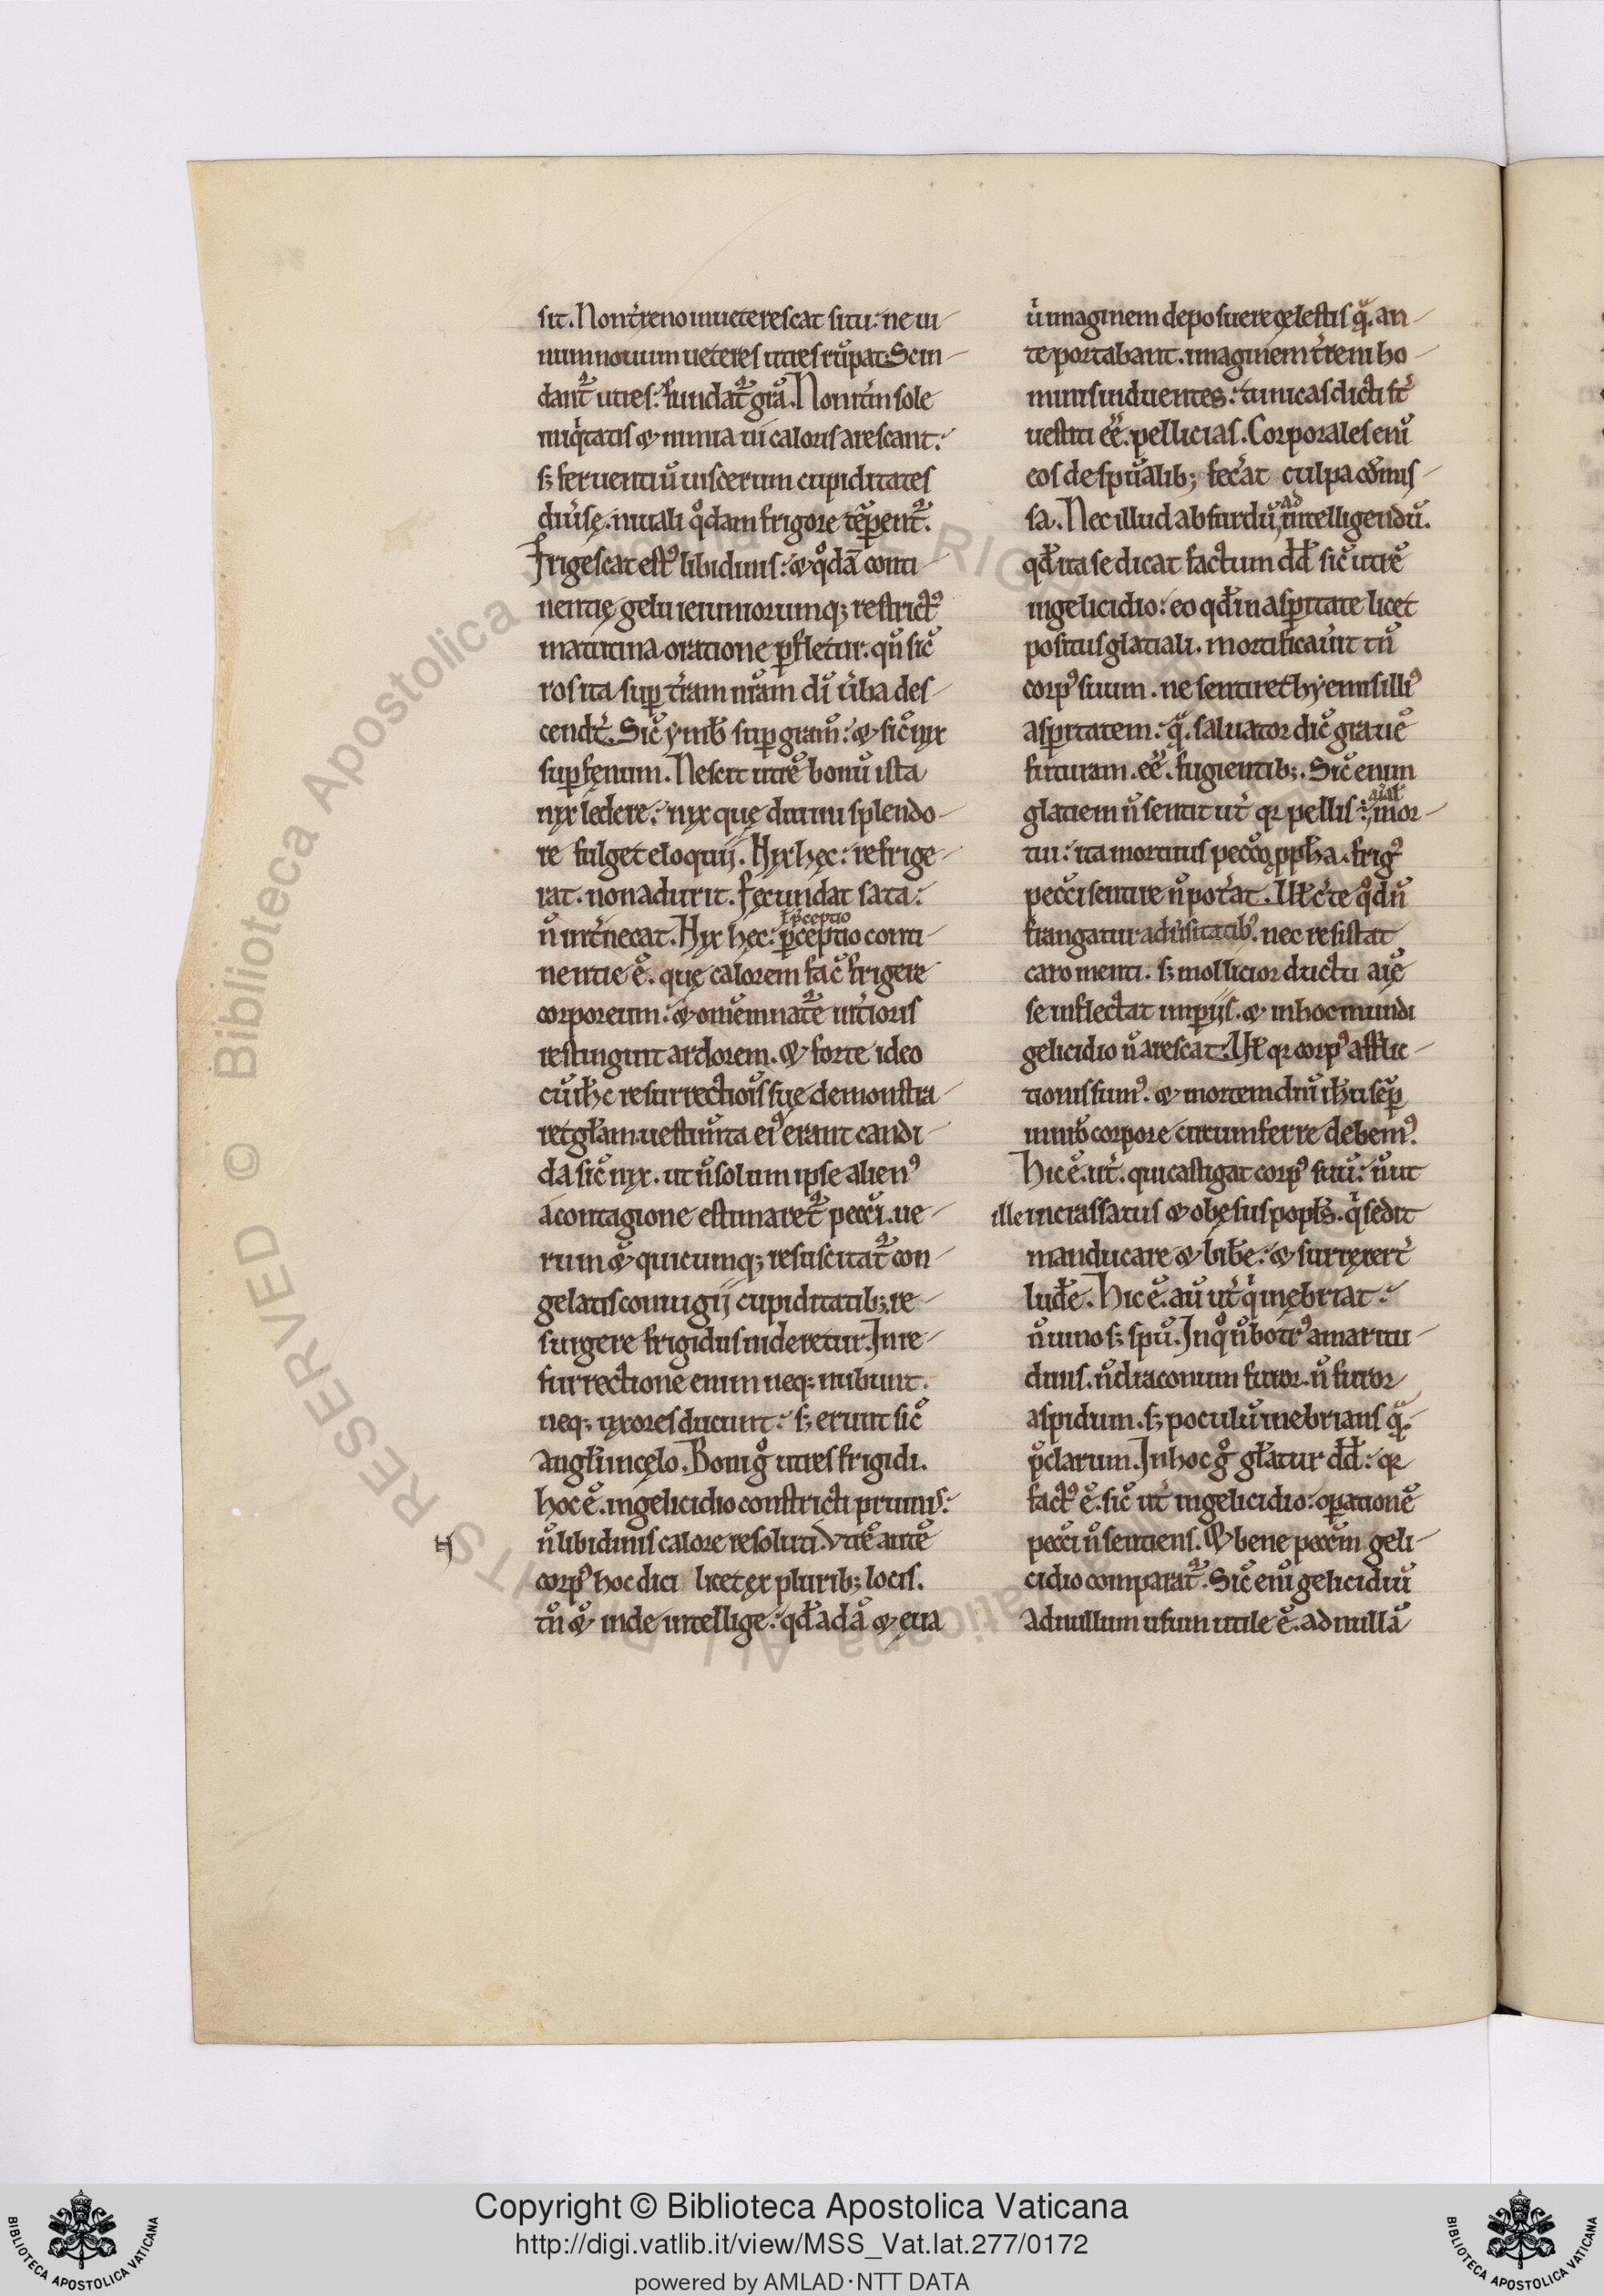 sit. Non tꝰreno inueterescat situ: ne ui-
num nouum ueteres utres rūpat. Scin-
dant̄ utres: fundat̄ gr̄a. Non in sole
iniq̇tatis & nimia ui caloris arescant:
sꝫ feruentiū uiscerum cupiditates
diu̇sę. niuali qͦdam frigore tēꝑent̄.
Frigescat estꝰ libidinis: & qͦdā conti-
nentię gelu ieiuniorumqꝫ restrictꝰ
matutina oratione ꝑfletur. qn̄ sic̄
ros ita suꝑ tr̄am nr̄am dī uerba des-
cendt̄. Sic̄ ymb̄ suꝑ gram̄: & sic̄ nix
suꝑ fęnum. Nescit utrē bonū ista
nyx lędere: nyx quę diuini splendo-
re fulget eloquij. Nyx hęc: refrige-
rat. non adurit. fęcundat sata:
n̄ int̄necat. Nyx hęc: ꝑceptio conti-
nentie ē. quę calorem fac̄ frigere
corporeum: & om̄em nat̄e int̄ioris
restingit ardorem. & forte ideo
cū ih̄c resurrectiōis suę demonstra-
ret gl̄am. uestim̄ta eiꝰ erant candi-
da sic̄ nyx. ut n̄ solum ipse alienꝰ
a contagione estimaret̄ pecc̄i. ue-
rum & quicumqꝫ resuscitat̄ con-
gelatis coniugij cupiditatibꝫ. re-
surgere frigidus uideretur. In re-
surrectione enim neqꝫ nubunt.
neqꝫ uxores ducunt: sꝫ erunt sic̄
angl̄i in cęlo. Boni gͦ utres frigidi.
hoc ē. in gelicidio constricti pruinis:
n̄ libidinis calore resoluti. Vtrē autē
corpꝰ hoc dici licet ex pluribꝫ locis.
tn̄ & inde intellige: qd̄ adā & eua
ú imaginem deposuere cęlestis q̄. an-
te portabant. imaginem tr̄eni ho-
minis induentes: tunicas dicti st̄
uestiti eē. pellicias. Corporales eni̅
eos de spūalibꝫ fec̄at culpa co̅mis-
sa. Nec illud absurdū ad intelligendū.
qd̄ ita se dicat factum dd̄ sic̄ utrē
in gelicidio: eo qd̄ in asꝑitate licet
positus glatiali. mortificau̇it tn̄
corpꝰ suum. ne sentiret hyemis illiꝰ
asꝑitatem: q̄. saluator dic̄ grauē
futuram. eē. fugientibꝫ. Sic̄ enim
glatiem n̄ sentit ut̄ qr pellis: aīal mor-
tui: ita mortuus pecc̄o ꝓph̄a. frigꝰ
pecc̄i sentire n̄ pot̄at. Vl̄ c̄te qͦdū
frangatur adu̇sitatibꝰ. nec resistat
caro menti. sꝫ mollicior ductu aīe
se inflectat imꝑijs. & in hoc mundi
gelicidio n̄ arescat. Vl̄ qr corpꝰ afflic-
tionis sumꝰ. & mortem dn̄i ih̄u sēꝑ
in nr̄o corpore circumferre debemꝰ.
Hic ē. ut̄. qui castigat corpꝰ suū: n̄ ut
ille incrassatus & obęsus popl̄s. q̇ sedit
manducare & bib̄e: & surrexert̄
lud̄e. Hic ē. au̅ ut̄ q̇ inębriat:
n̄ uino sꝫ spū. In qͦ n̄ botrꝰ amaritu-
dinis. n̄ draconum furor. n̄ furor
aspidum. sꝫ poculū inebrians q̄.
p̄clarum. In hoc gͦ gl̄atur dd̄: qr
factꝰ ē. sic̄ ut̄ in gelicidio: oꝑationē
pecc̄i n̄ sentiens. & bene pecc̄m geli-
cidio comparat̄. Sic̄ eni̅ gelicidiū
ad nullum usum utile ē. ad nullā